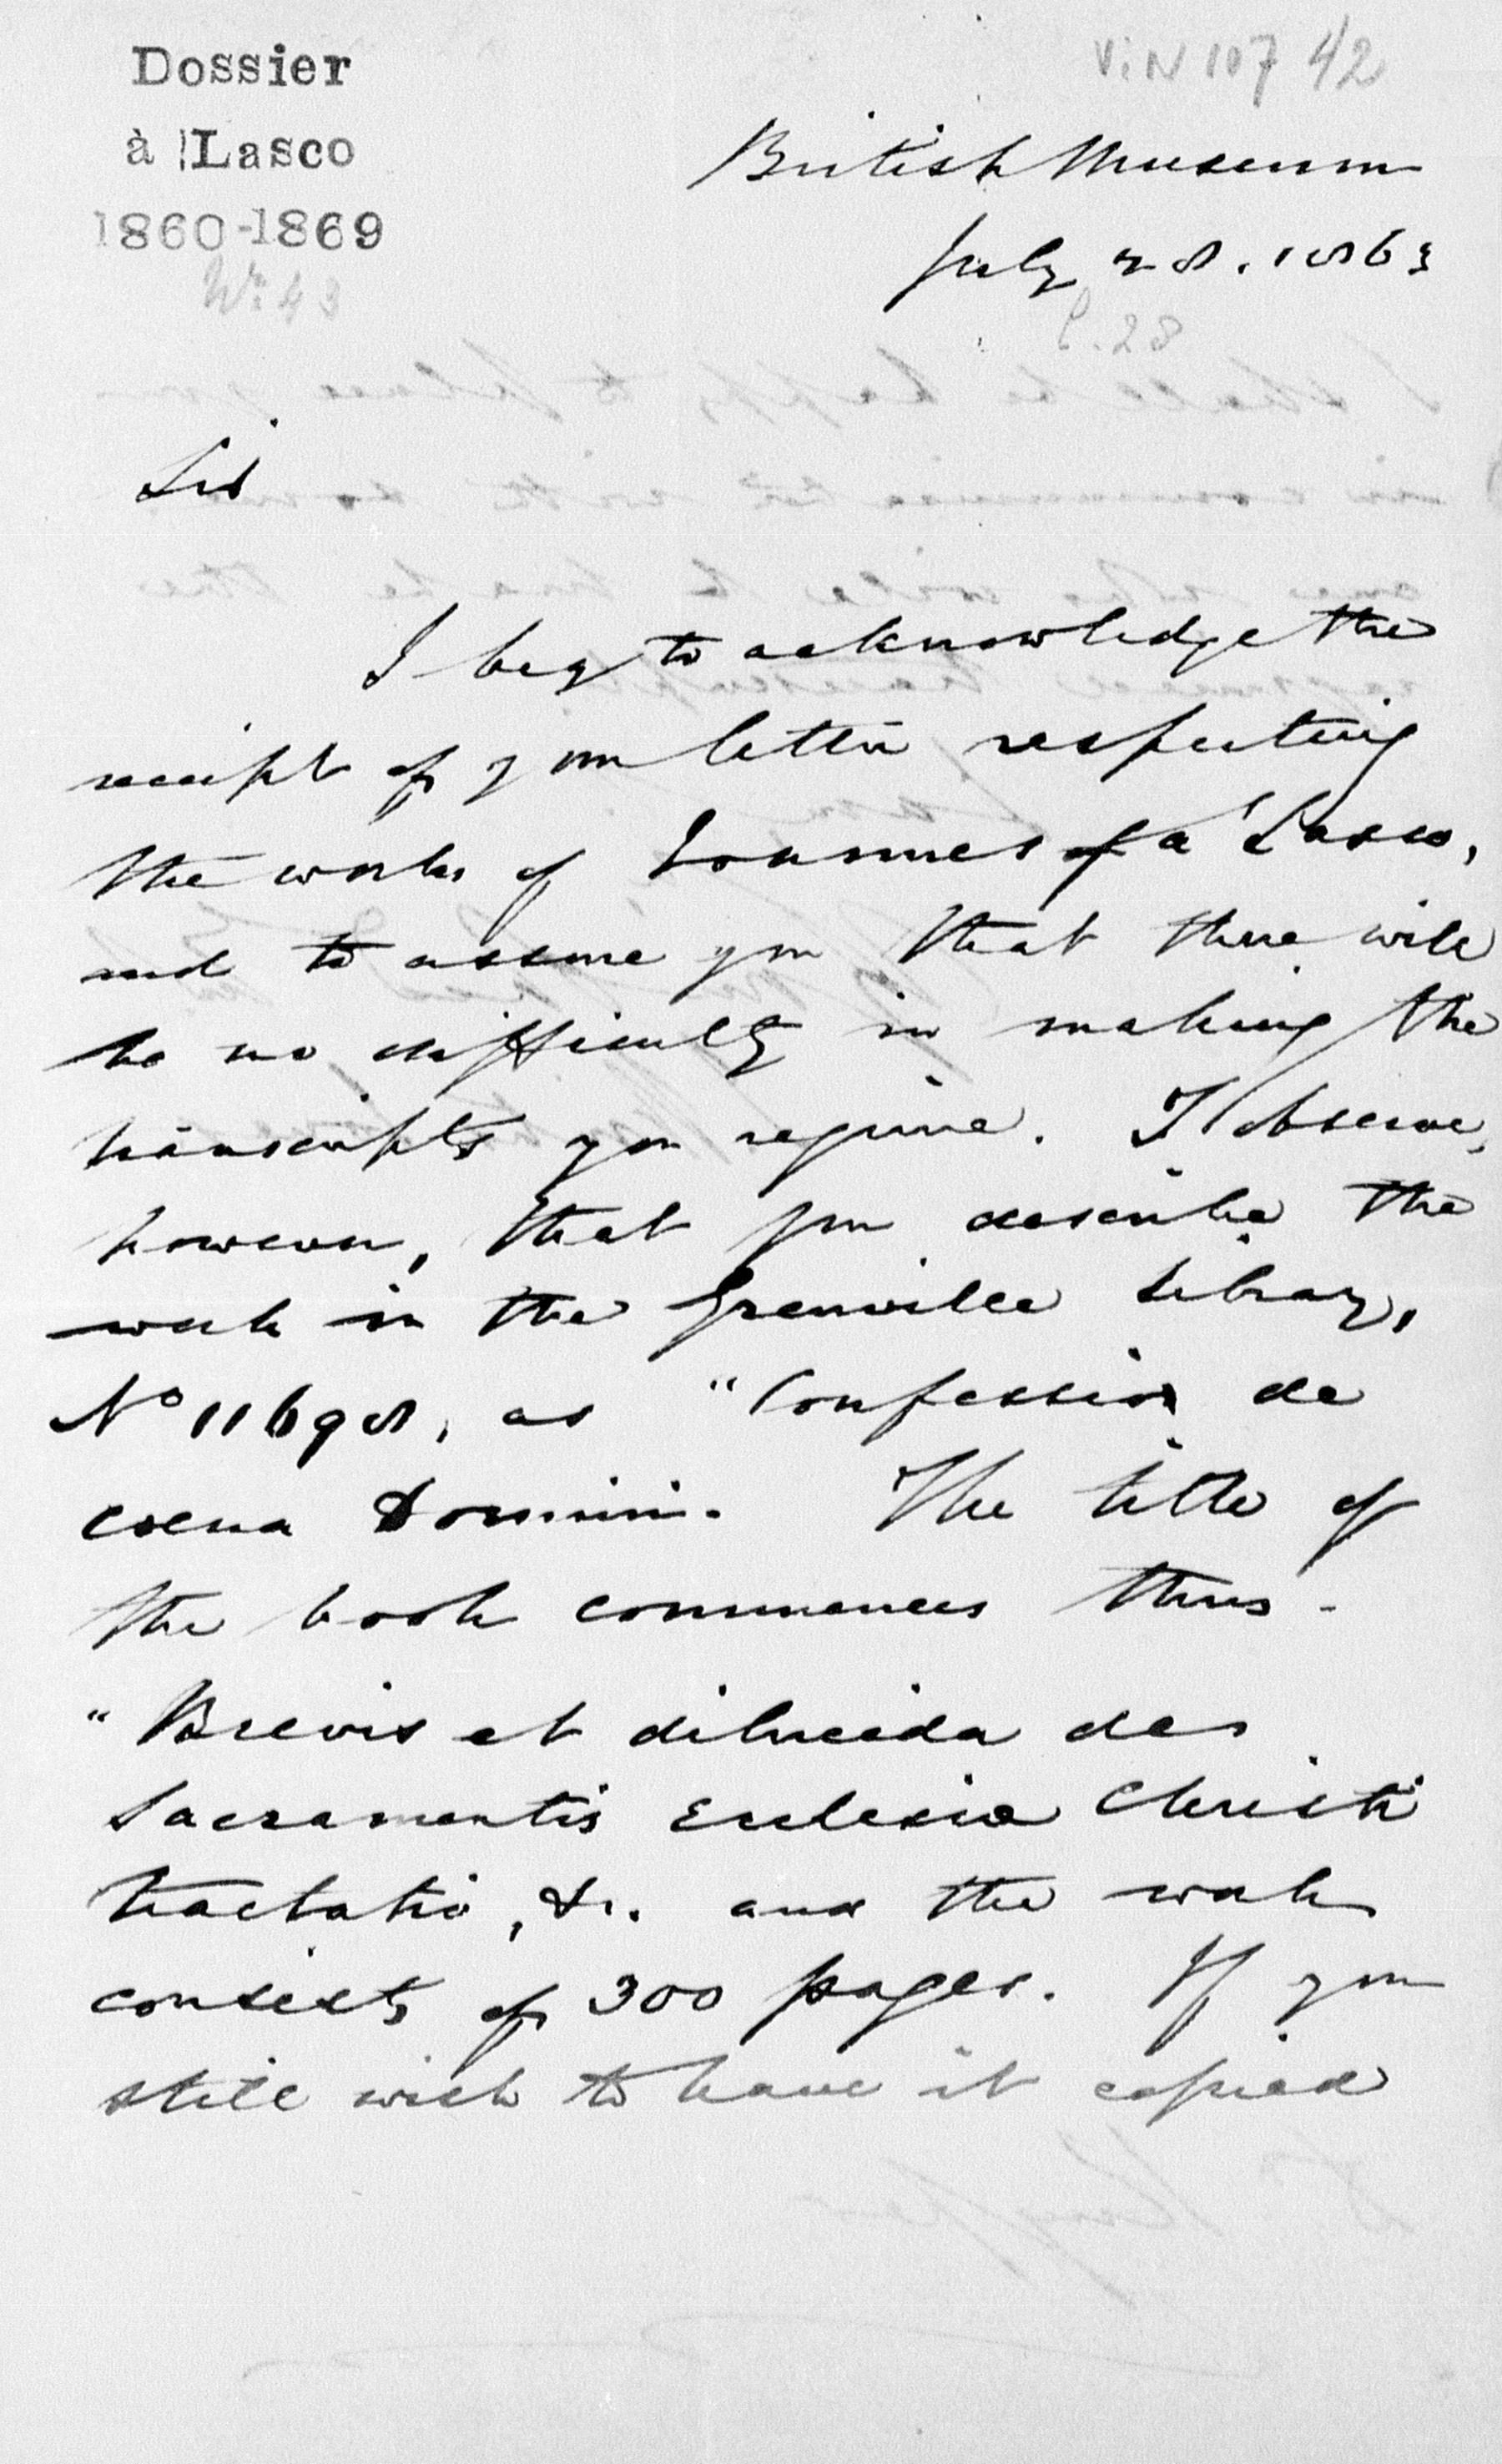 Dossier
à Lasco
1860-1869
No 43
ViN 107 42
British Museum
July 28. 1863
C. 28
Sir
I beg to acknowledge the
receipt of your letter respecting
the works of Joannes a Lasco,
and to assure you that there will
be no difficulty in making the
transcripts you require. I observe,
however, that you describe the
work in the Grenville Library,
No 11698, as "Confession de
coena Domini. The title of
the book commences thus -
"Brevis et dilucida de
Sacramentis Ecclesiae Christi
tractatio, &c. and the work
consists of 300 pages. If you
still wish to have it copied